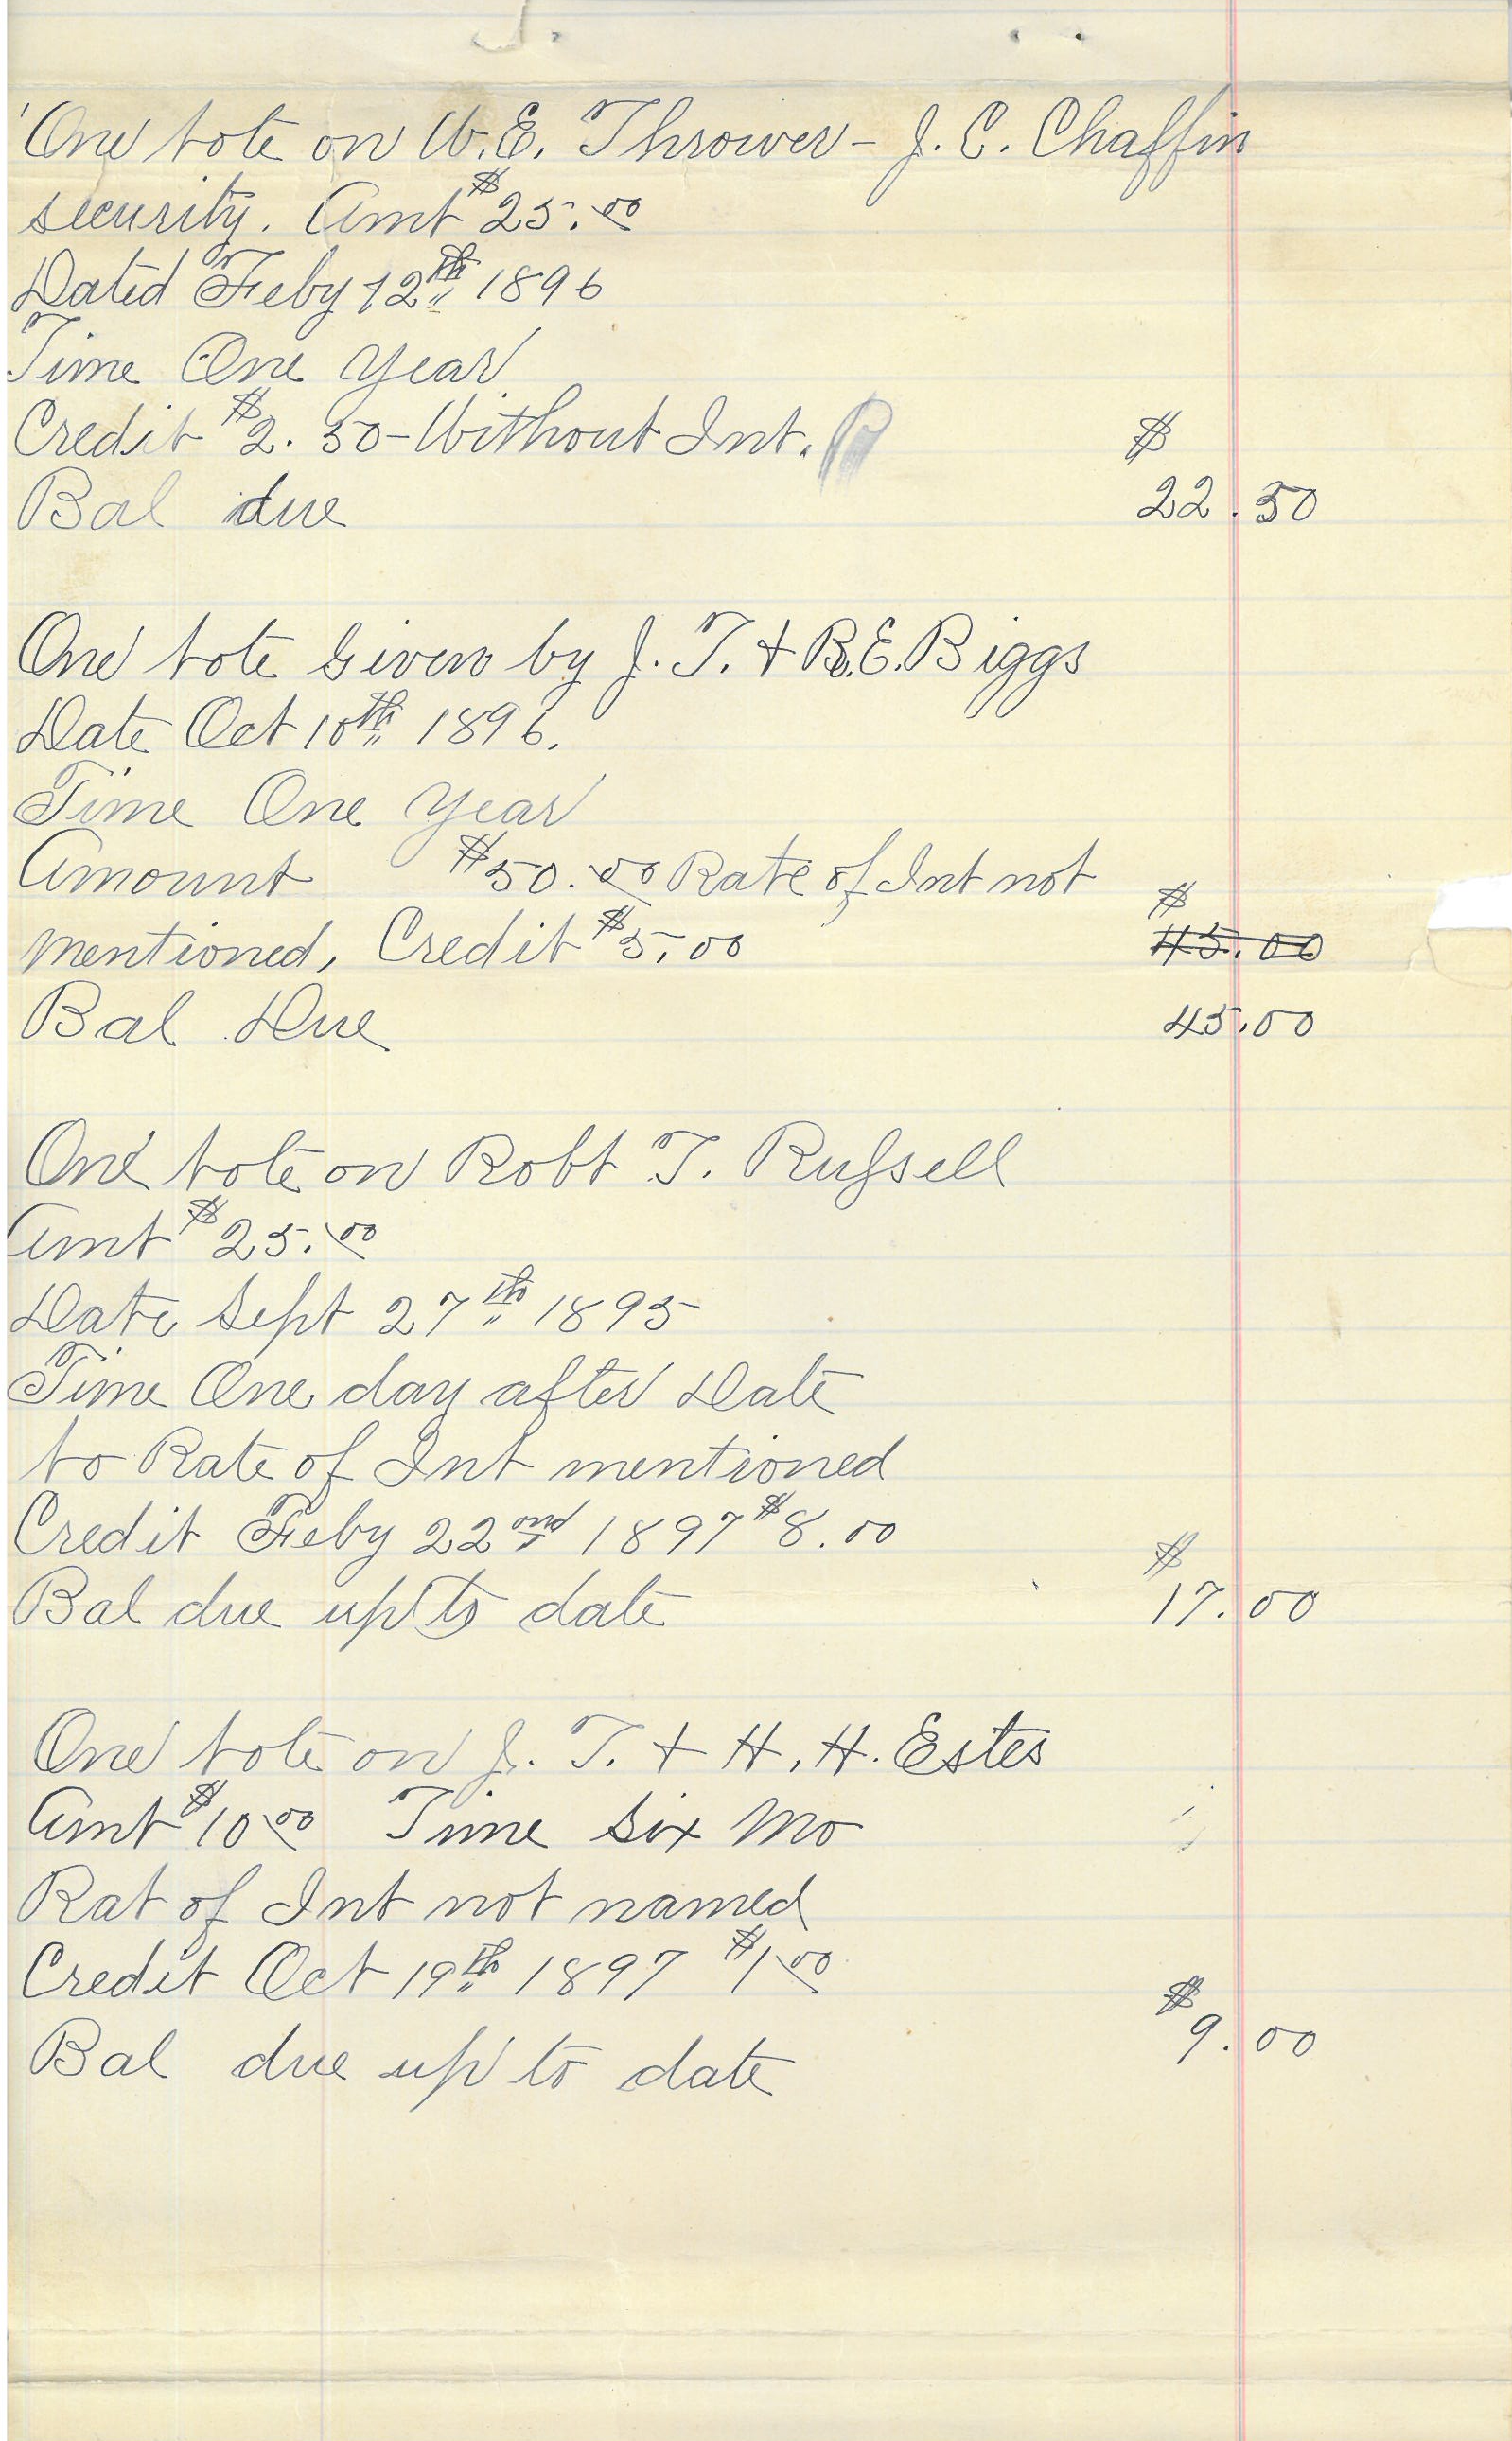 One Note on W. E. Thrower - J. C. Chaffin
security. Amt $25.00
Dated Feby 12th 1896
Time One Year
Credit $2.50 - Without Int. $
Bal due 22.50
One Note Given by J. T. + B. E. Biggs
Date Oct 10th 1896.
Time One Year
Amount $50.00 Rate of Int not $
mentioned, Credit $5.00 45.00
Bal Due 45.00
One Note on Robt T. Russell
Amt $25.00
Date Sept 27th 1895
Time One day after Date
No Rate of Int mentioned
Credit Feby 22nd 1897 $8.00 $
Bal due up to date 17.00
One Note on J. T. + H. H. Estes
Amt $10.00 Time Six Mo
Rat of Int not named
Credit Oct 19th 1897 $1.00 $
9.00
Bal due up to date